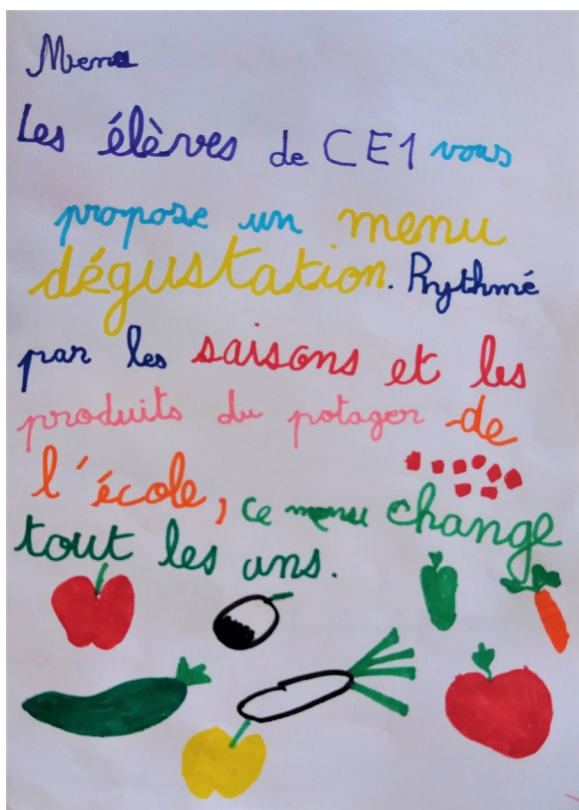 Menu
Les élèves de CE1 vous
propose un menu
dégustation. Rythmé
par les saisons et les
produits du potager de
l'école, ce menu change
tout les ans.